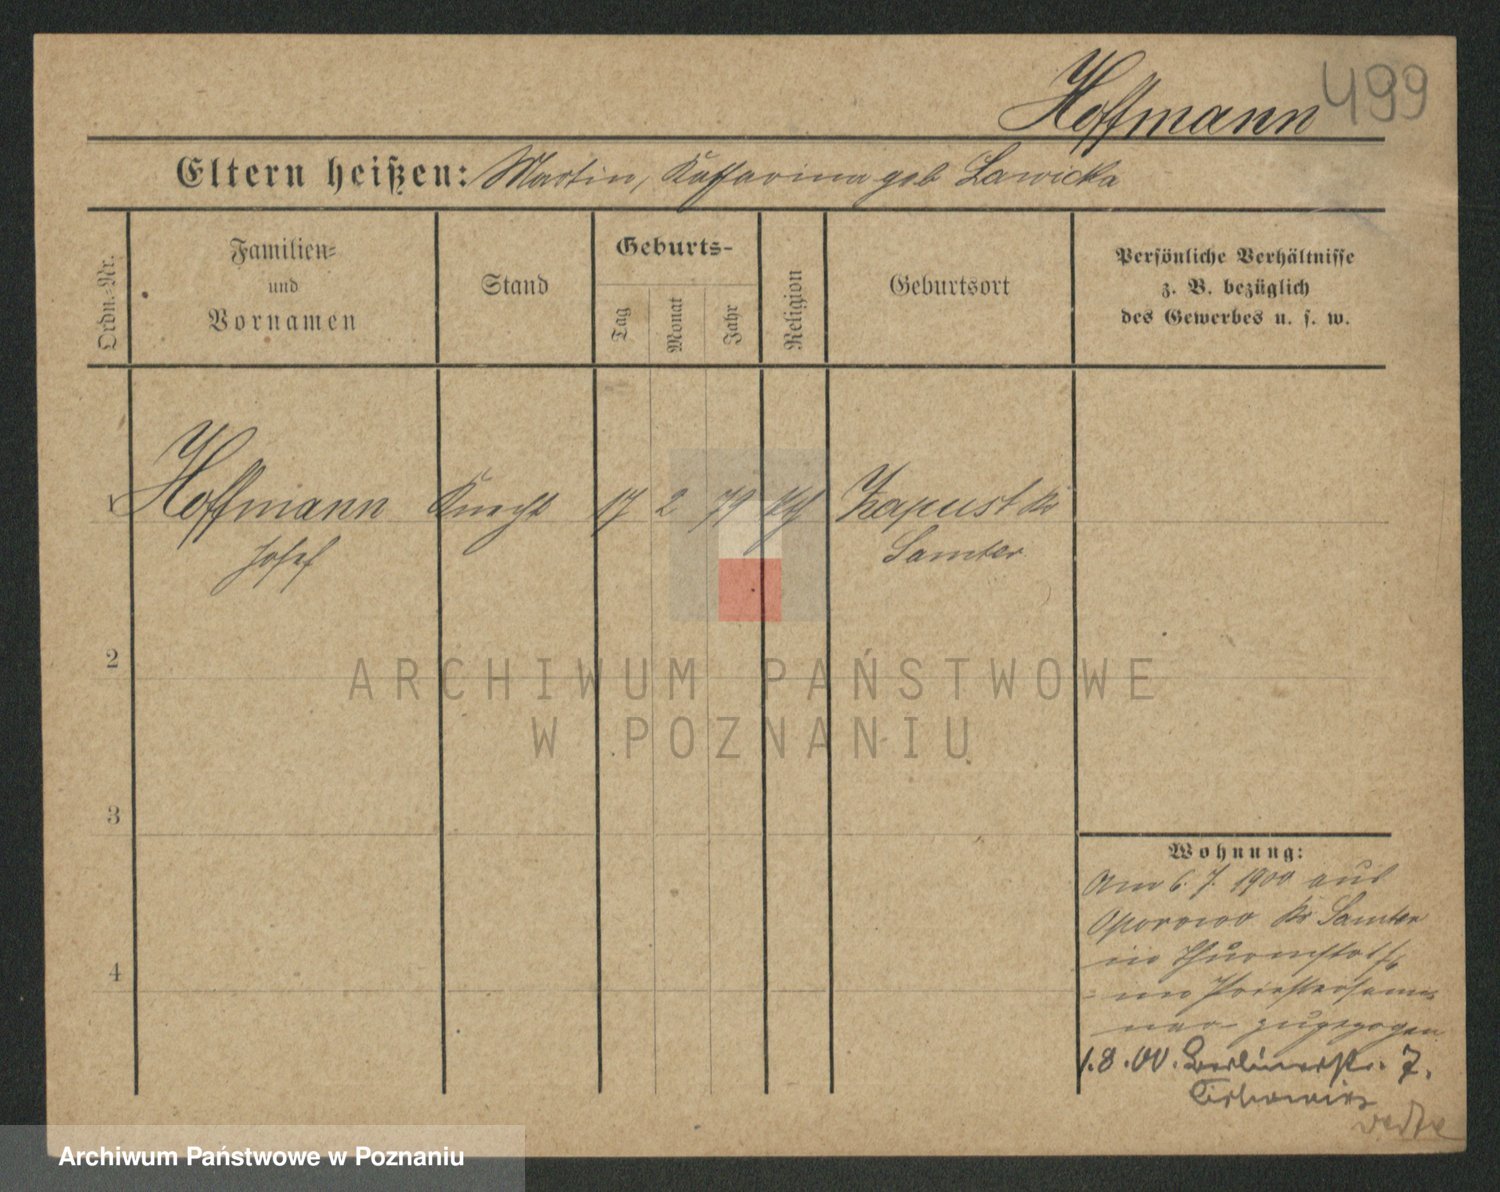 Hoffmann 499
Eltern heißen: Martin, Katharina geb Lawicka
Ordn.-Nr.
Familien-
und
Vornamen
Stand
Geburts-
Tag
Monat
Jahr
Religion
Geburtsort
Persönliche Verhältnisse
z. B. bezüglich
des Gewerbes u. s. w.
1 Hoffmann Knecht 17 2 79 kth Zapust Kr
Josef Samter
2
ARCHIWUM PAŃSTWOWE
W POZNANIU
3
4
Wohnung:
Am 6. 7. 1900 aus
Oporowo Kr Samter
in
im Priestersemi
nar zugezogen
1.8.00. Berlinerstr. 7.
Archiwum Państwowe w Poznaniu